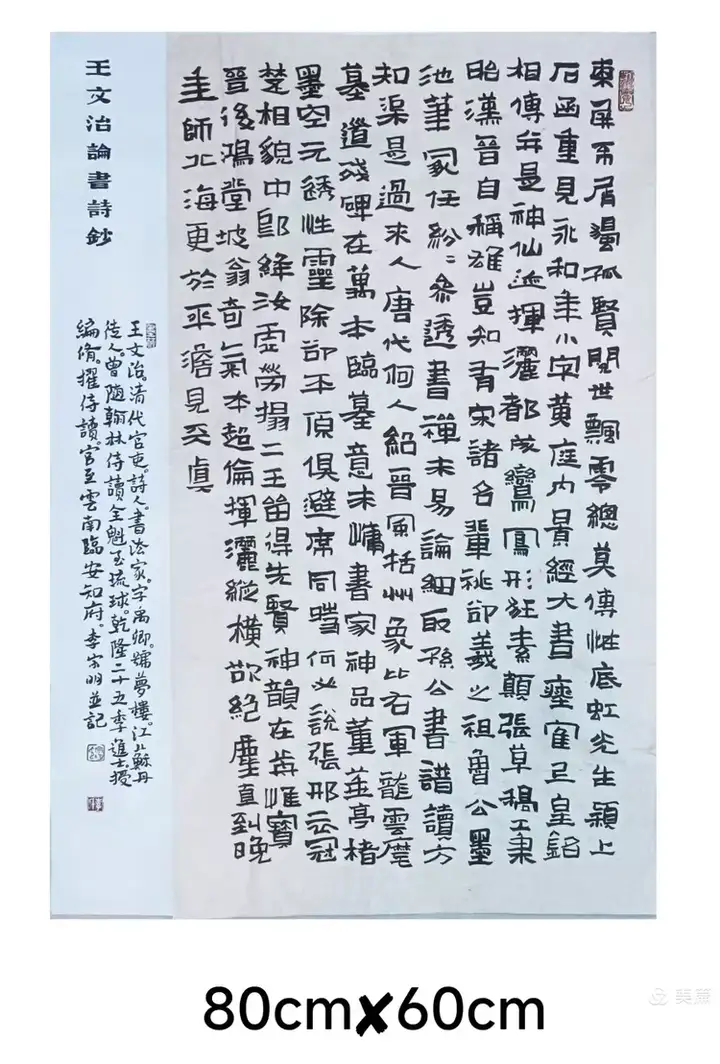 東屏不屑獨孤賢閱世飄零總莫傳底虹光生潁上
石函重見永和年小字黃庭內景經大書瘞寉正皇銘
相傳并是神仙迹揮灑都成鸞鳳形狂素顛張草稿工秉
昭漢晉自稱雄豈知有宋諸名輩祧卻羲之祖魯公墨
池筆冢任紛紛參透書禪未易論細取孫公書譜讀方
知渠是過來人唐代何人紹晉風括州象比右軍龍雲麾
墓道殘碑在萬本臨摹意未慵書家神品董華亭楮
墨空元透性靈除卻平原俱避席同時何必說張邢云冠
楚相貌中郎絳汝虛勞搨二王留得先賢神韻在前惟寶
晉後鴻堂坡翁奇氣本超倫揮灑縱橫欲絕塵直到晚
年師北海更於平澹見天真
王文治論書詩鈔
王文治。清代官吏。詩人。書法家。字禹卿。號夢樓。江蘇丹
徒人。曾隨翰林侍讀全魁至琉球。乾隆二十五年進士。授
編脩。擢侍讀。官至雲南臨安知府。李宗明並記
80cm✘60cm
美篇